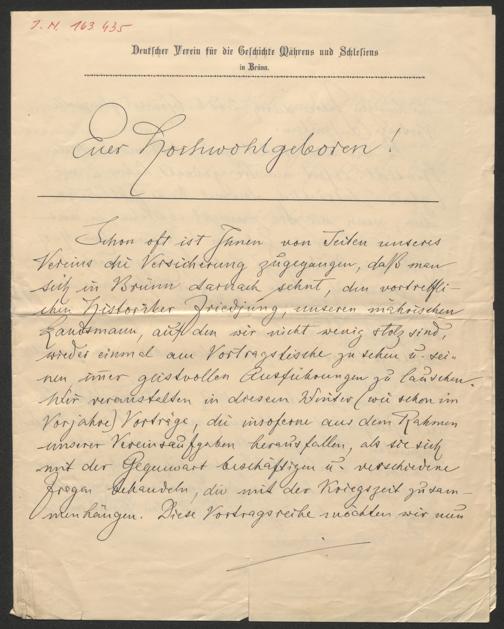 J. N. 163 435
Deutscher Verein für die Geschichte Mährens und Schlesiens
in Brünn.
Euer Hochwohlgeboren!
Schon oft ist Ihnen von Seiten unseres
Vereins die Versicherung zugegangen, daß man
sich in Brünn darnach sehnt, den vortreffli-
chen Historiker Friedjung, unseren mährischen
Landsmann, auf den wir nicht wenig stolz sind,
wieder einmal am Vortragstische zu sehen u. sei-
nen, immer geistvollen Ausführungen zu lauschen.
Wir veranstalten in diesem Winter (wie schon im
Vorjahre) Vorträge, die insoferne aus dem Rahmen
unserer Vereinsaufgaben herausfallen, als sie sich
mit der Gegenwart beschäftigen u. verschiedene
Fragen behandeln, die mit der Kriegszeit zusam-
menhängen. Diese Vortragsreihe möchten wir nun